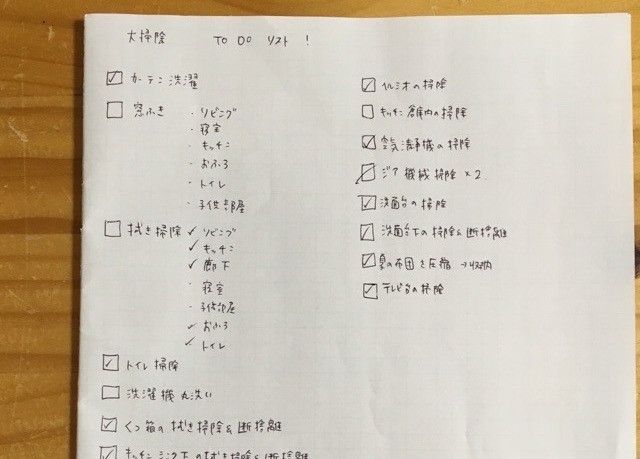 大掃除 TO DO リスト!
☑ カーテン洗濯
☐ 窓ふき ・リビング
・寝室
・キッチン
・おふろ
・トイレ
・子供部屋
☐ 拭き掃除 ✓リビング
✓キッチン
✓廊下
・寝室
・子供部屋
✓おふろ
✓トイレ
☑ トイレ掃除
☐ 洗濯機丸洗い
☑ くつ箱の拭き掃除&断捨離
☑ キッチンシンク下の拭き掃除&断捨離
☑ ヘルシオの掃除
☐ キッチン倉庫内の掃除
☑ 空気清浄機の掃除
☑ ジア機械掃除×2
☑ 洗面台の掃除
☑ 洗面台下の掃除&断捨離
☑ 夏の布団を圧縮→収納
☑ テレビ台の掃除